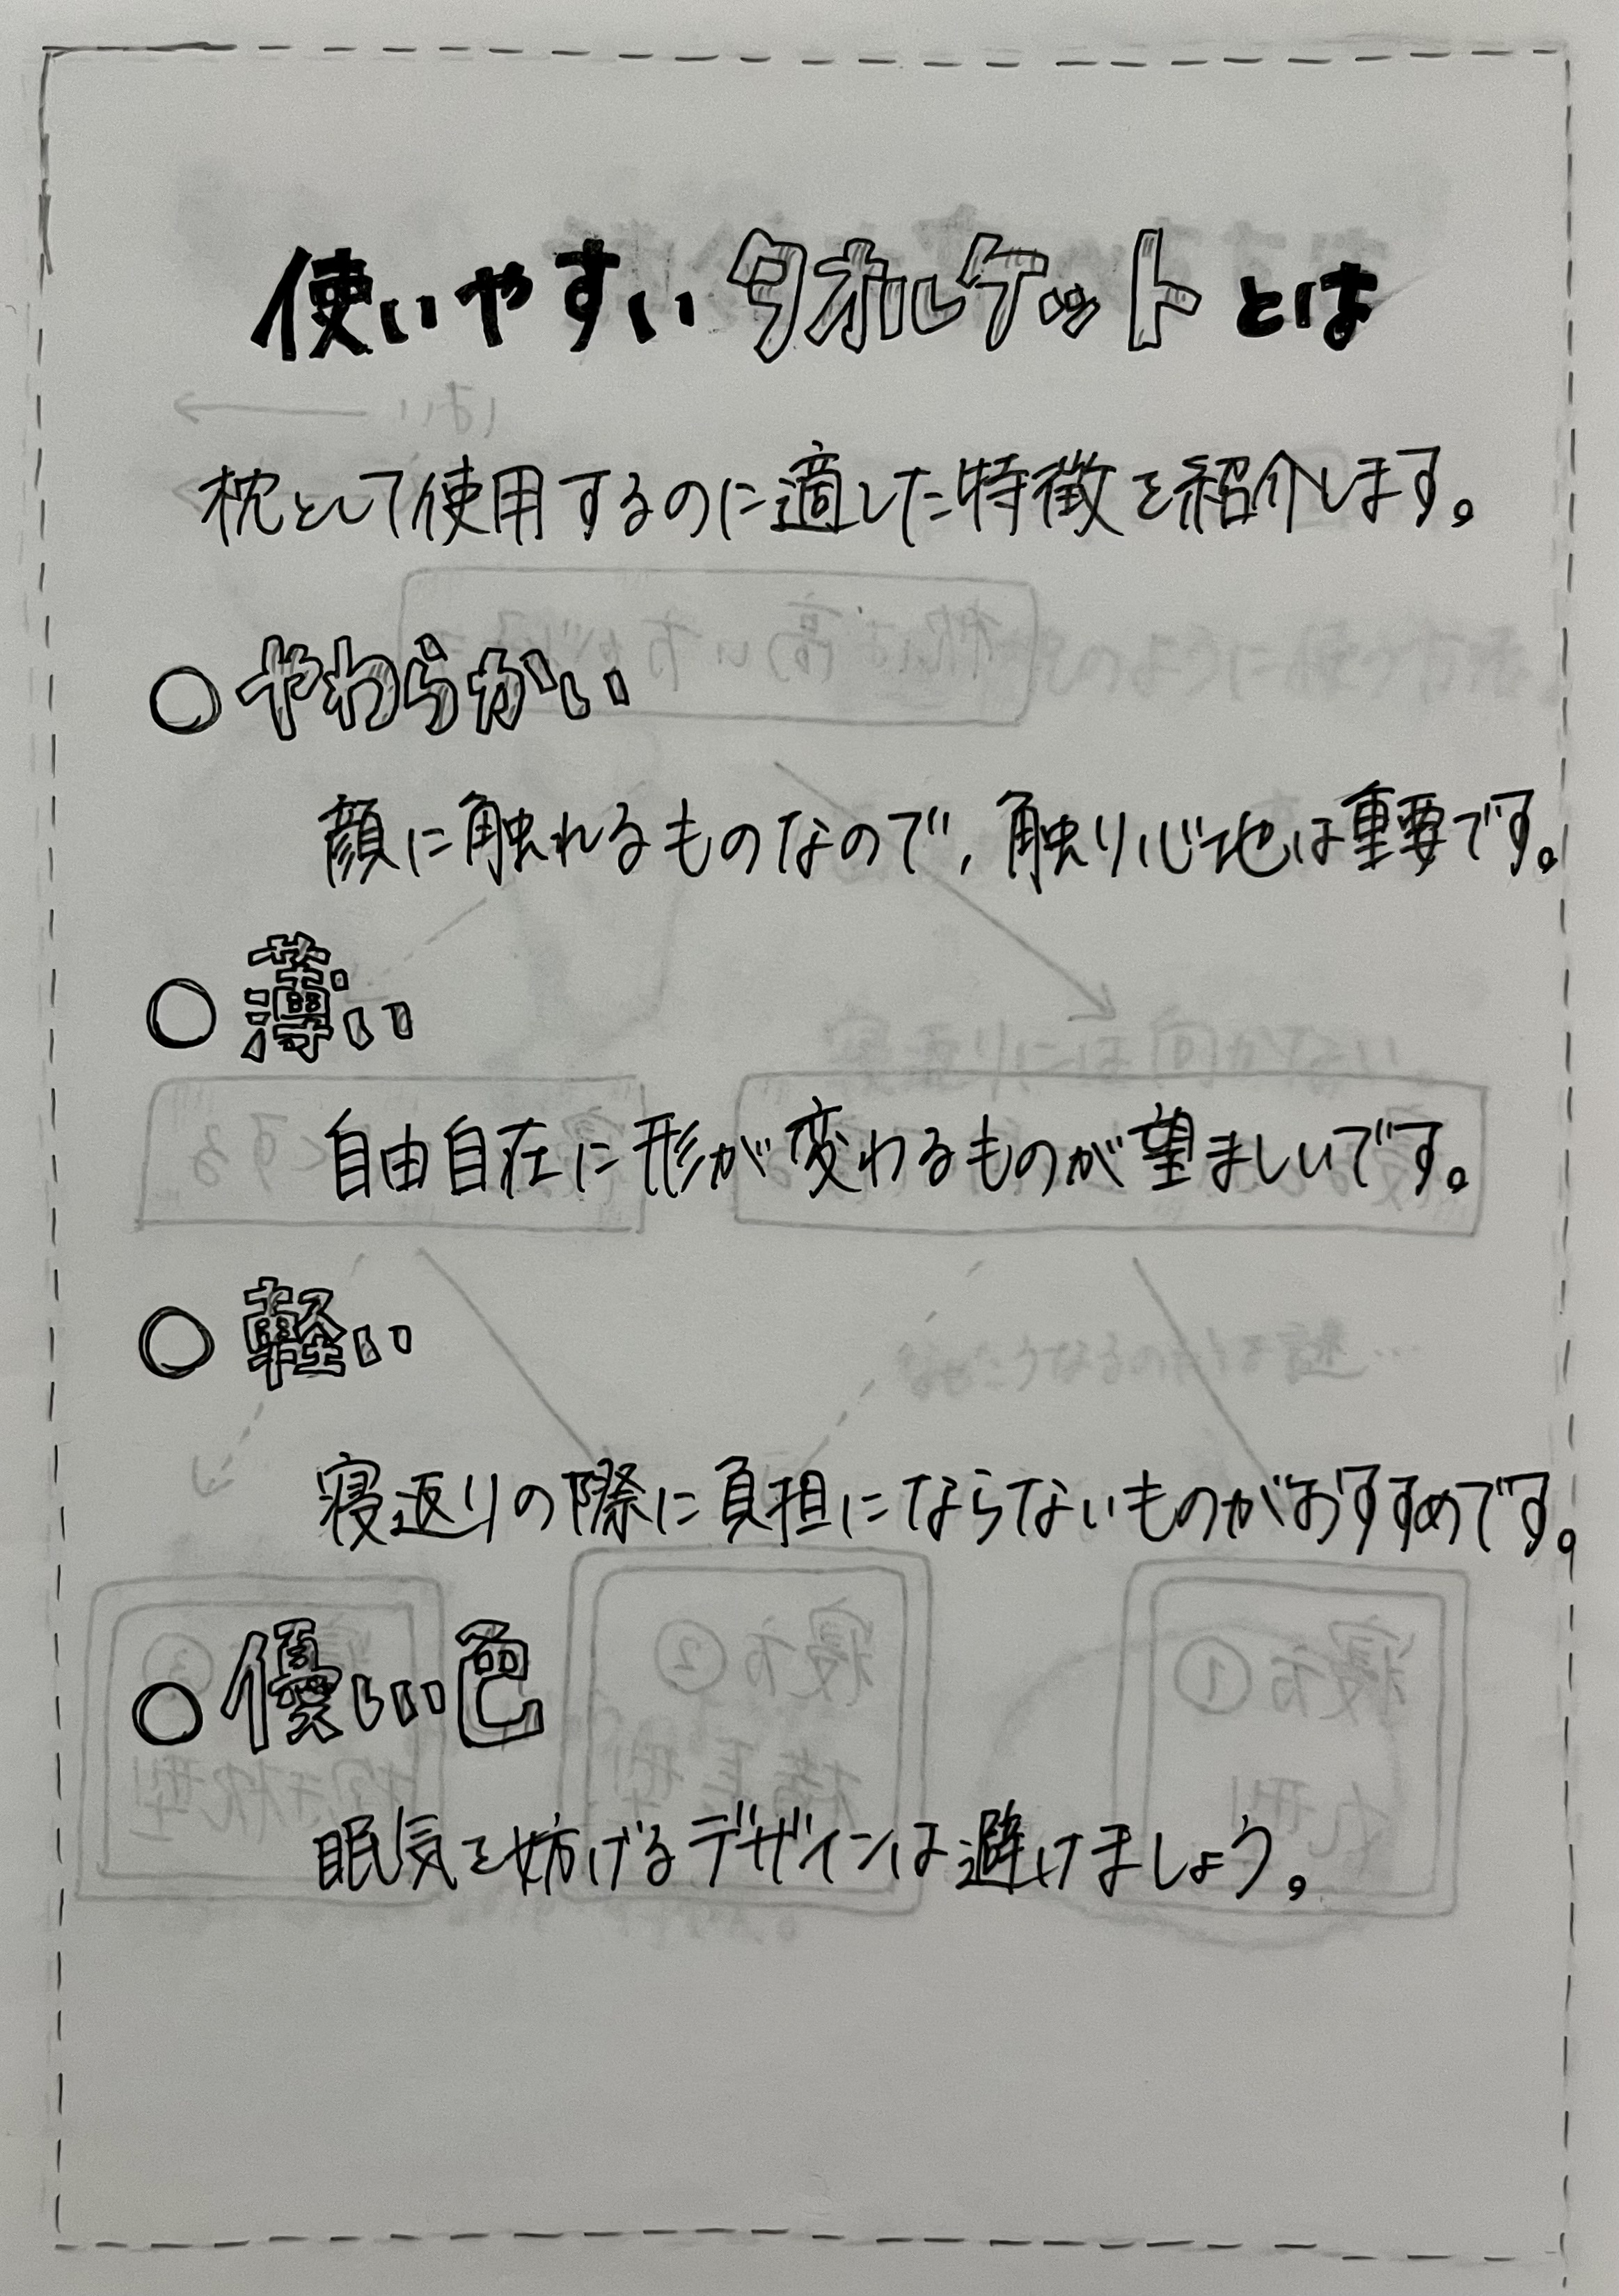 使いやすいタオルケットとは
枕として使用するのに適した特徴を紹介します。
○やわらかい
顔に触れるものなので、触り心地は重要です。
○薄い
自由自在に形が変わるものが望ましいです。
○軽い
寝返りの際に負担にならないものがおすすめです。
○優しい色
眠気を妨げるデザインは避けましょう。